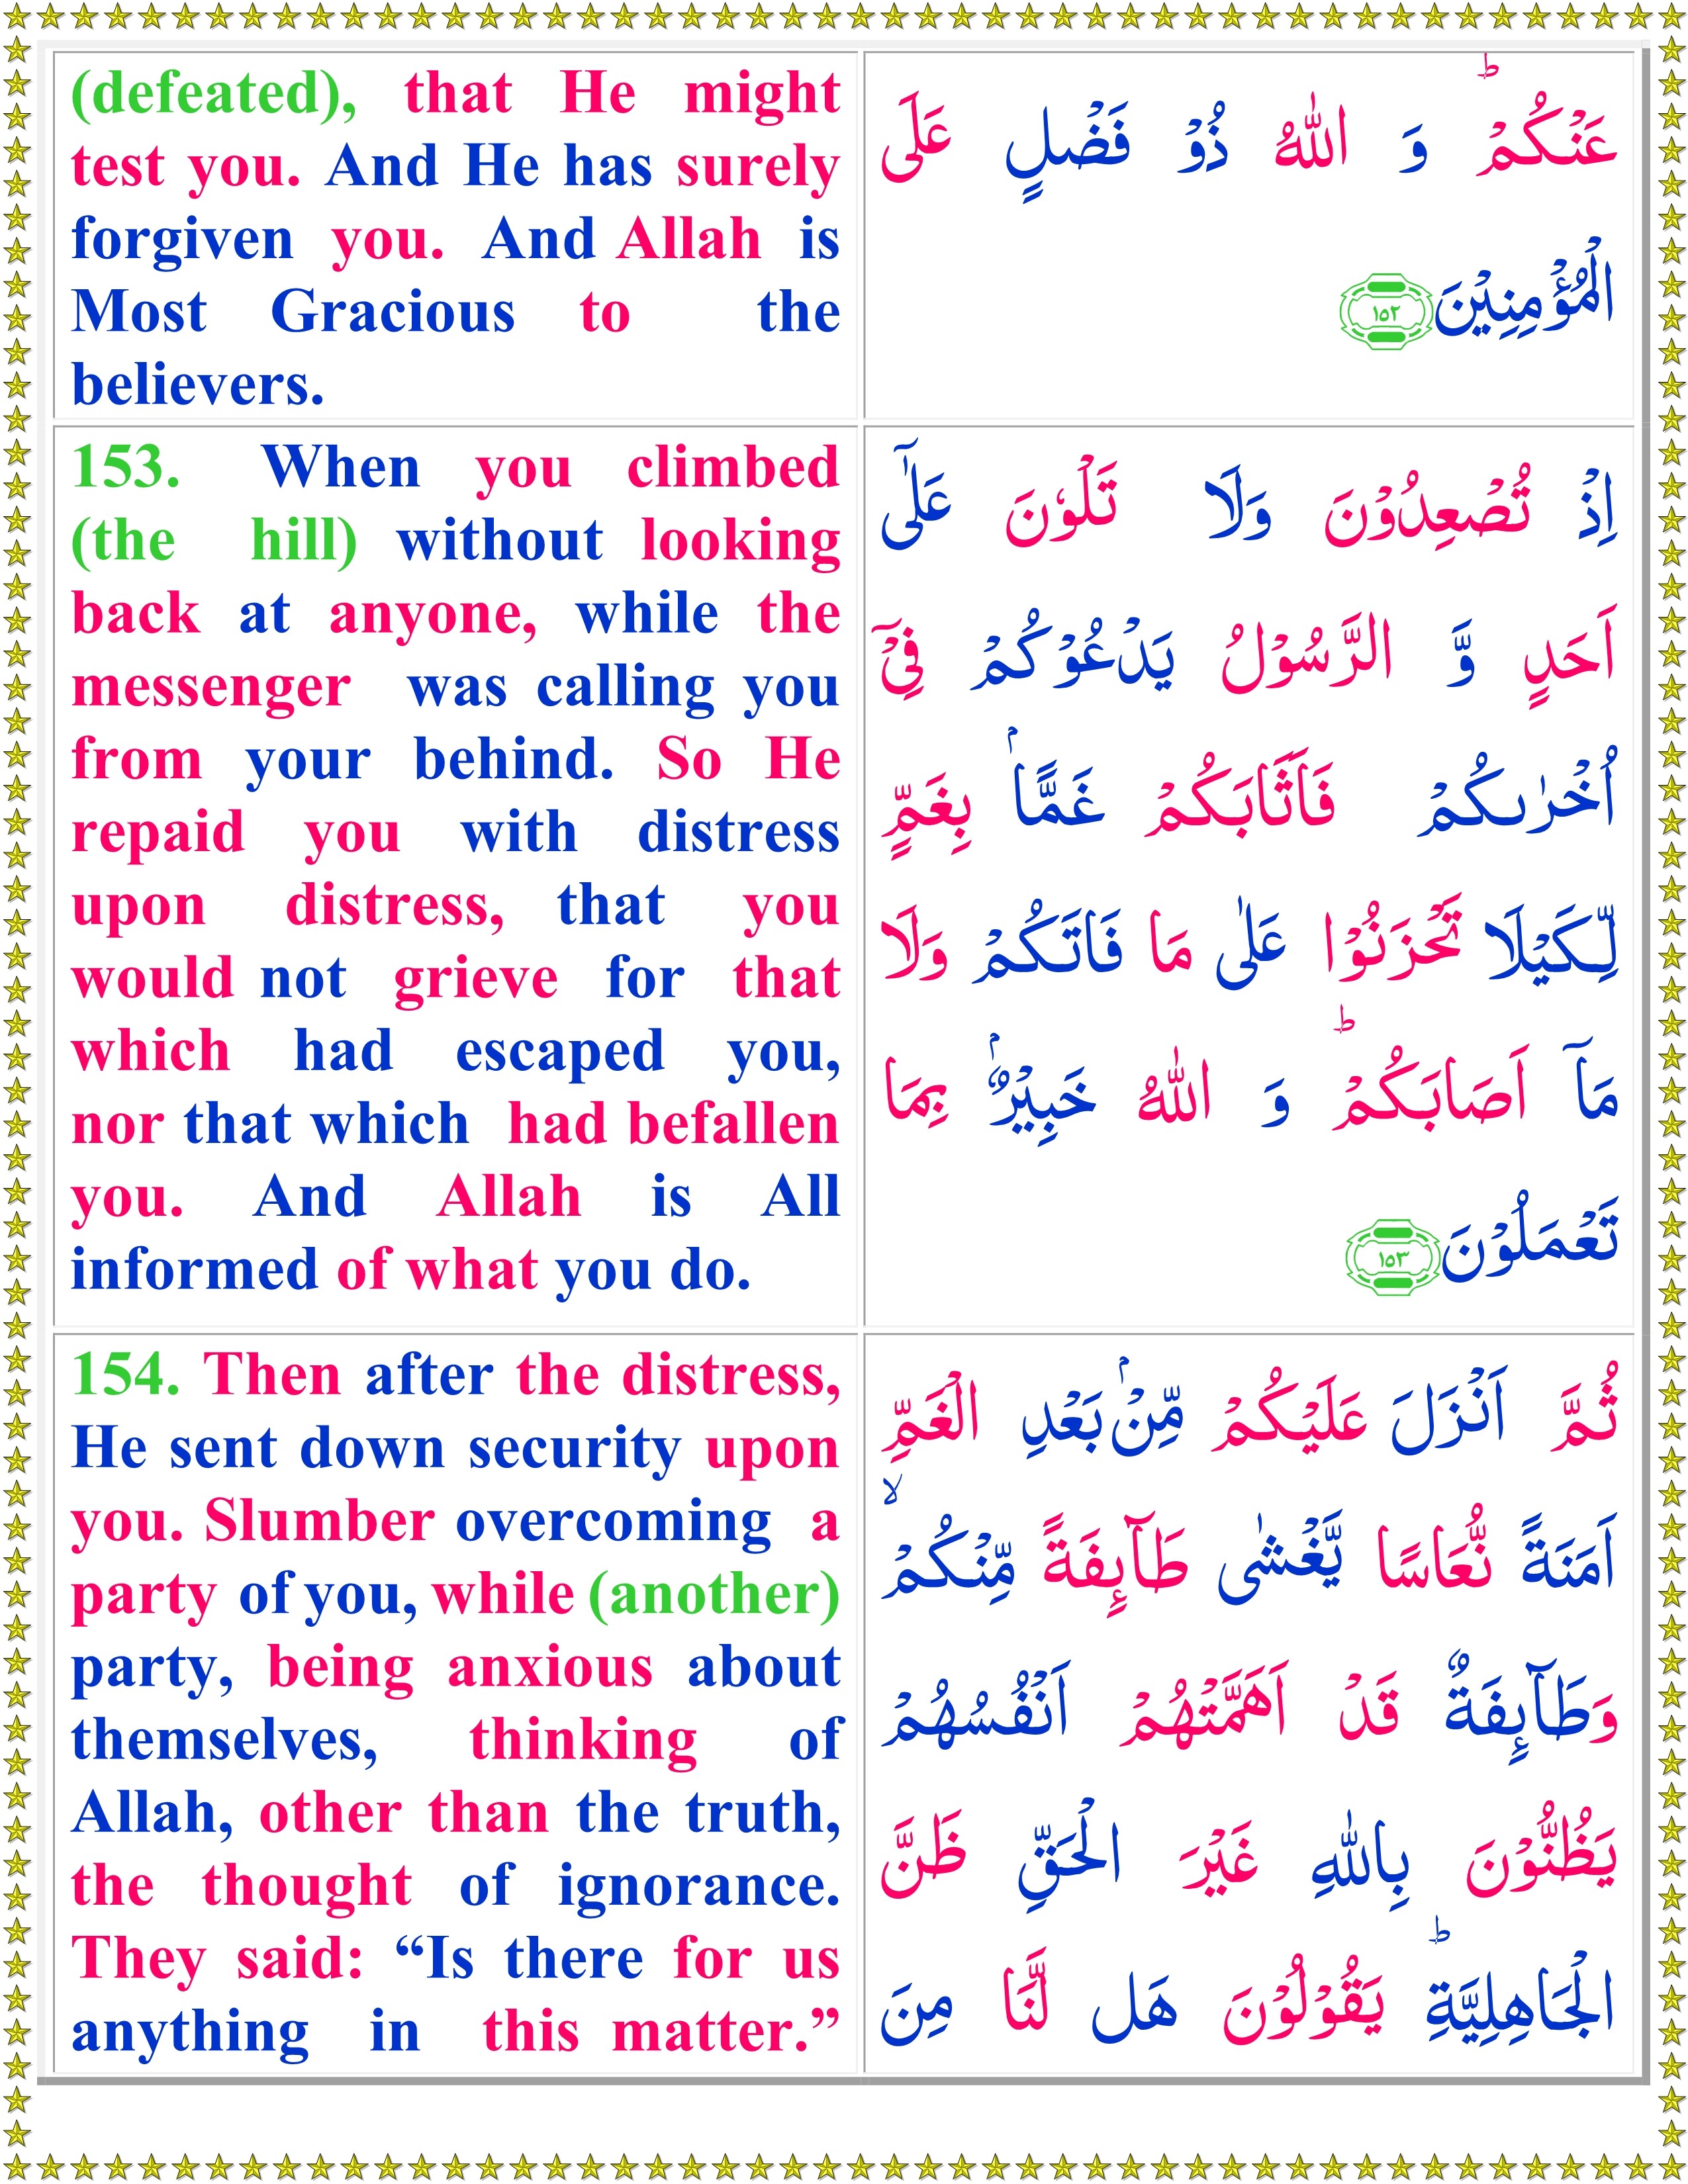 (defeated), that He might
test you. And He has surely
forgiven you. And Allah is
Most Gracious to the
believers.
عَنۡكُمۡ​ؕ وَ اللّٰهُ ذُوۡ فَضۡلٍ عَلَى
الۡمُؤۡمِنِيۡنَ‏ ﴿۱۵۲﴾
153. When you climbed
(the hill) without looking
back at anyone, while the
messenger was calling you
from your behind. So He
repaid you with distress
upon distress, that you
would not grieve for that
which had escaped you,
nor that which had befallen
you. And Allah is All
informed of what you do.
اِذۡ تُصۡعِدُوۡنَ وَلَا تَلۡوٗنَ عَلٰٓى
اَحَدٍ وَّ الرَّسُوۡلُ يَدۡعُوۡكُمۡ فِىۡۤ
اُخۡرٰٮكُمۡ فَاَثَابَكُمۡ غَمًّاۢ بِغَمٍّ
لِّـكَيۡلَا تَحۡزَنُوۡا عَلٰى مَا فَاتَكُمۡ وَلَا
مَاۤ اَصَابَكُمۡ​ؕ وَ اللّٰهُ خَبِيۡرٌۢ بِمَا
تَعۡمَلُوۡنَ‏ ﴿۱۵۳﴾
154. Then after the distress,
He sent down security upon
you. Slumber overcoming a
party of you, while (another)
party, being anxious about
themselves, thinking of
Allah, other than the truth,
the thought of ignorance.
They said: “Is there for us
anything in this matter.”
ثُمَّ اَنۡزَلَ عَلَيۡكُمۡ مِّنۡۢ بَعۡدِ الۡغَمِّ
اَمَنَةً نُّعَاسًا يَّغۡشٰى طَآٮِٕفَةً مِّنۡكُمۡ​ۙ
وَطَآٮِٕفَةٌ قَدۡ اَهَمَّتۡهُمۡ اَنۡفُسُهُمۡ
يَظُنُّوۡنَ بِاللّٰهِ غَيۡرَ الۡحَـقِّ ظَنَّ
الۡجَـاهِلِيَّةِ​ؕ يَقُوۡلُوۡنَ هَل لَّنَا مِنَ